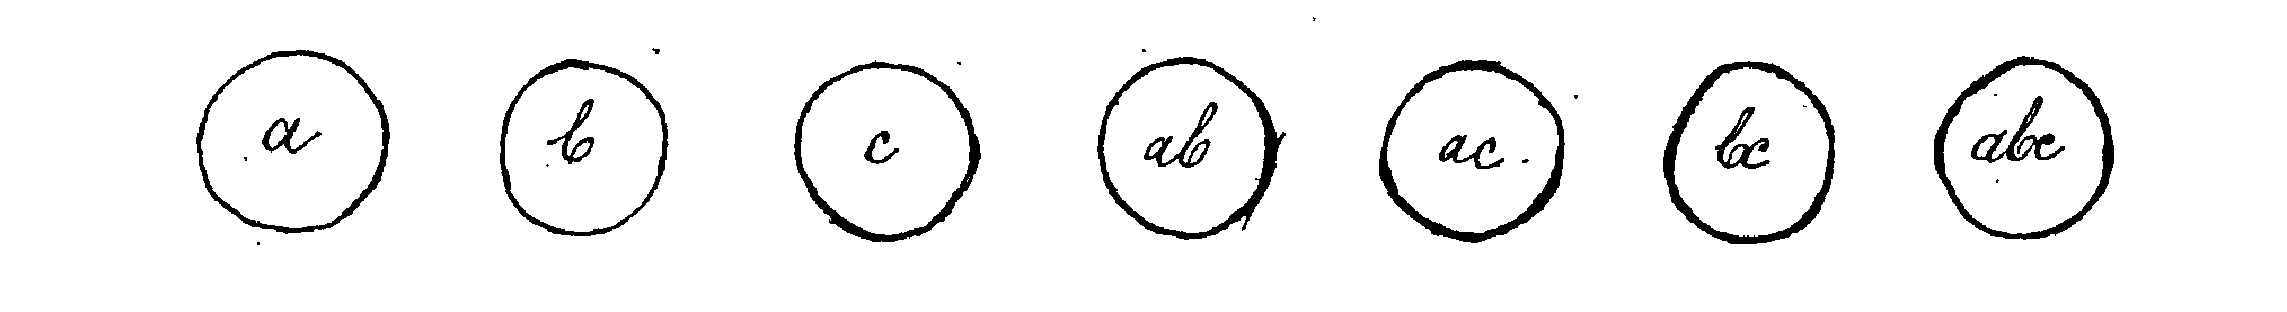 a b c ab ac. bc abc